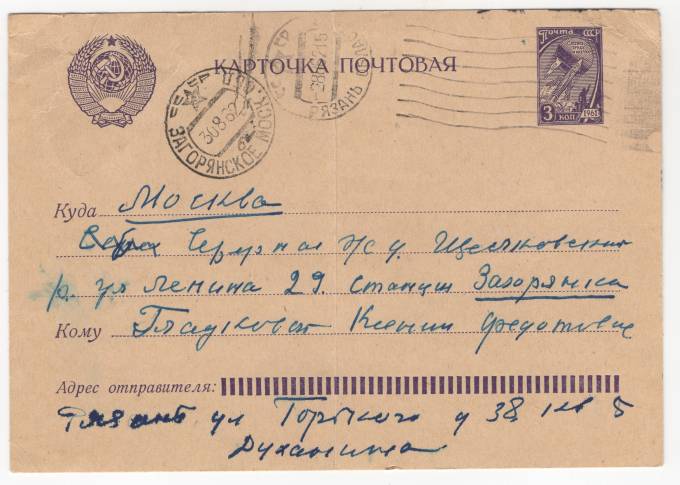 КАРТОЧКА ПОЧТОВАЯ
Почта СССР
3 КОП 1961
ЗАГОРЯНСКОЕ МОСК. ОБЛ.
30 8 62
РЯЗАНЬ
Куда Москва
Северная ж д Щелковский
р. ул Ленина 29. станция Загорянка
Кому Гладковой Ксении Федотовне
Адрес отправителя:
Рязань ул Горького д 38 кв 5
Духанина